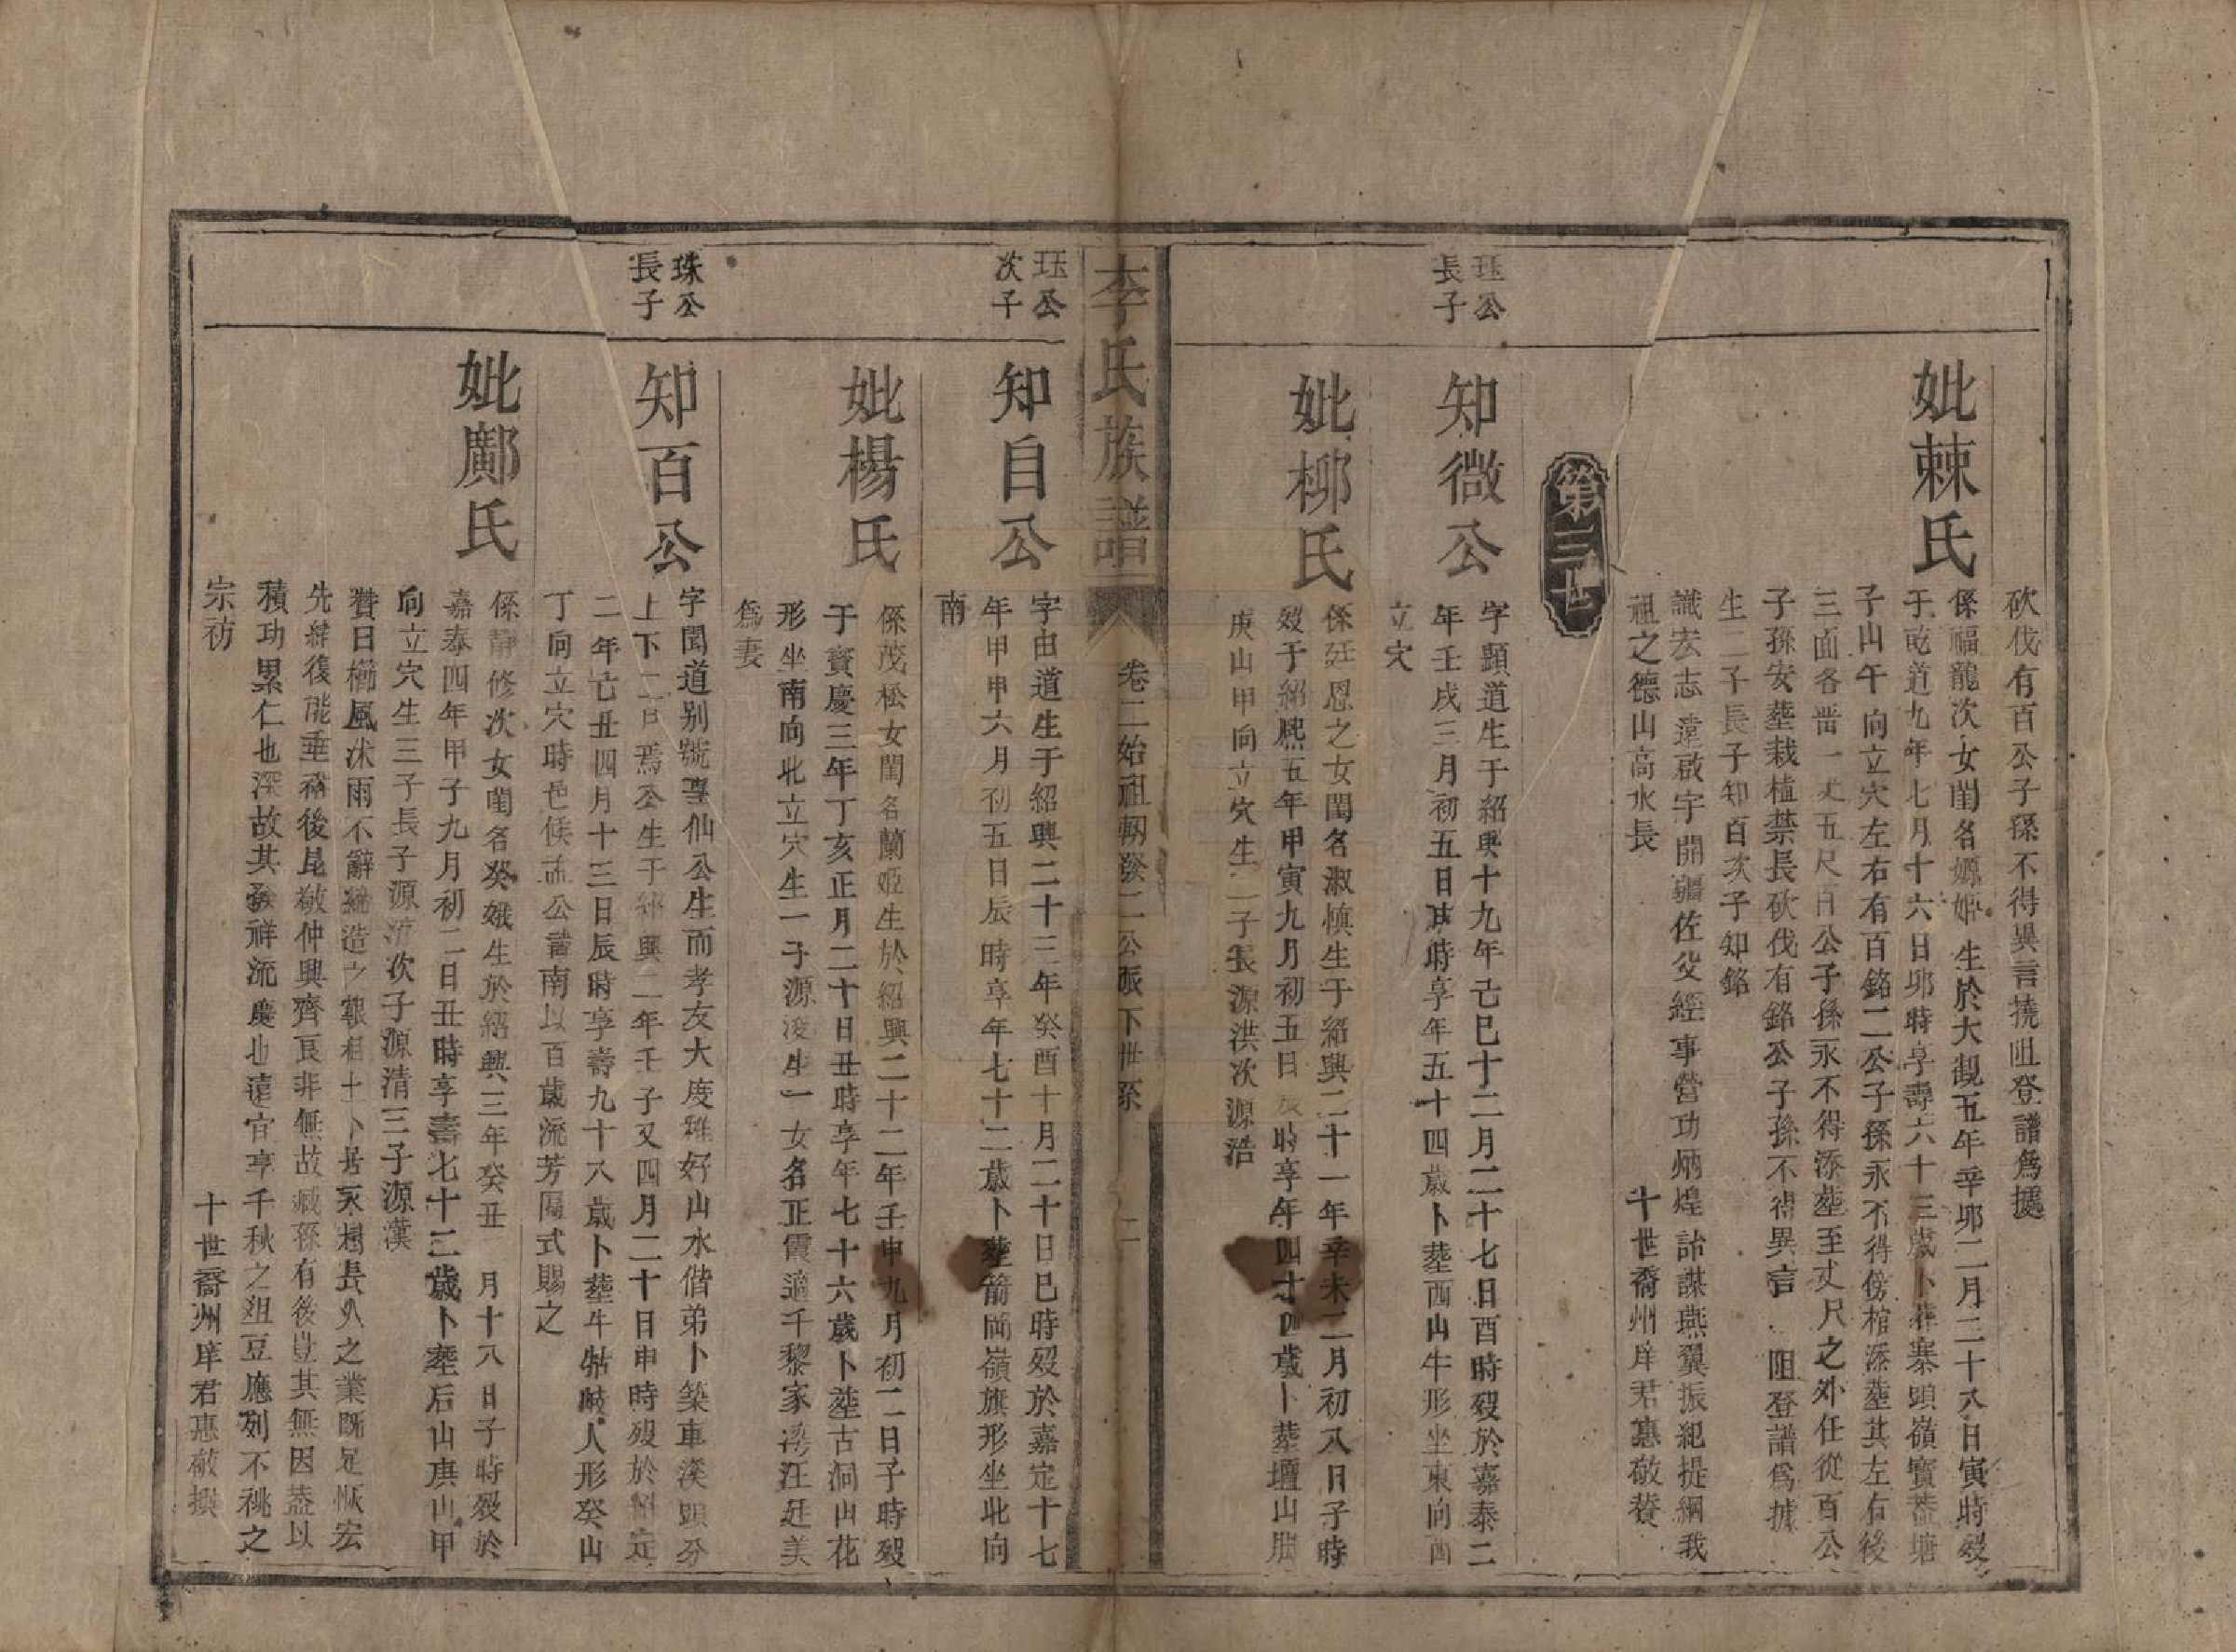 砍伐有百公子孫不得異言撓阻登譜爲據
妣棘氏
係福龍次女閨名嫄姬生於大觀五年辛邜二月二十八日寅時歿
于乾道九年七月十六日邜時享壽六十三歲卜葬寨頭嶺寶蓋塘
子山午向立穴左右有百銘二公子孫永不得傍棺添塟其左右後
三面各畄一丈五尺百公子孫永不得添塟至丈尺之外任從百公
子孫安塟栽植禁長砍伐有銘公子孫不得異言阻登譜爲據
生二子長子知百次子知銘
識宏志遠啟宇開疆佐父經事營功炳煌詒謀燕翼振紀提綱我
祖之德山高水長　十世裔州庠君惠敬賛
第三七
珏公長子
知微公
字顕道生于紹興十九年己巳十二月二十七日酉時歿於嘉泰二
年壬戌三月初五日時享年五十四歲卜塟西山牛形坐東向酉
立穴
妣柳氏
係廷恩之女閨名淑慎生于紹興二十一年辛未二月初八日子時
歿于紹熙五年甲寅九月初五日辰時享年四十四歲卜塟壇山脚
庚山甲向立穴生二子長源洪次源浩
李氏族譜
卷二始祖朝發二公派下世系　二
珏公次子
知自公
字由道生于紹興二十三年癸酉十月二十日巳時歿於嘉定十七
年甲申六月初五日辰時享年七十二歲卜塟箭崗嶺旗形坐北向
南
妣楊氏
係茂松女閨名蘭姬生於紹興二十二年壬申九月初二日子時歿
于寳慶三年丁亥正月二十日丑時享年七十六歲卜塟古洞山花
形坐南向北立穴生一子源淩生一女名正霞適千黎家灣汪廷美
爲妻
珠公長子
知百公
字聞道别號雪仙公生而孝友大度雅好山水偕弟卜築車溪顕分
上下二日焉公生于紹興二年壬子又四月二十日申時歿於紹定
二年己丑四月十三日辰時享壽九十八歲卜塟牛牯岐人形癸山
丁向立穴時邑候孟公諱南以百歲流芳匾式賜之
妣鄺氏
係靜修次女閨名癸娥生於紹興三年癸丑　月十八日子時歿於
嘉泰四年甲子九月初二日丑時享壽七十二歲卜塟后山庚山甲
向立穴生三子長子源流次子源清三子源漢
賛曰櫛風沐雨不辭締造之艱相土卜居永想長久之業既足恢宏
先緒後能垂裕後昆敬仲興齊良非無故臧孫有後豈其無因葢以
積功累仁也深故其發祥流慶也遠宜享千秋之俎豆應列不祧之
宗祊　十世裔州庠君惠敬撰